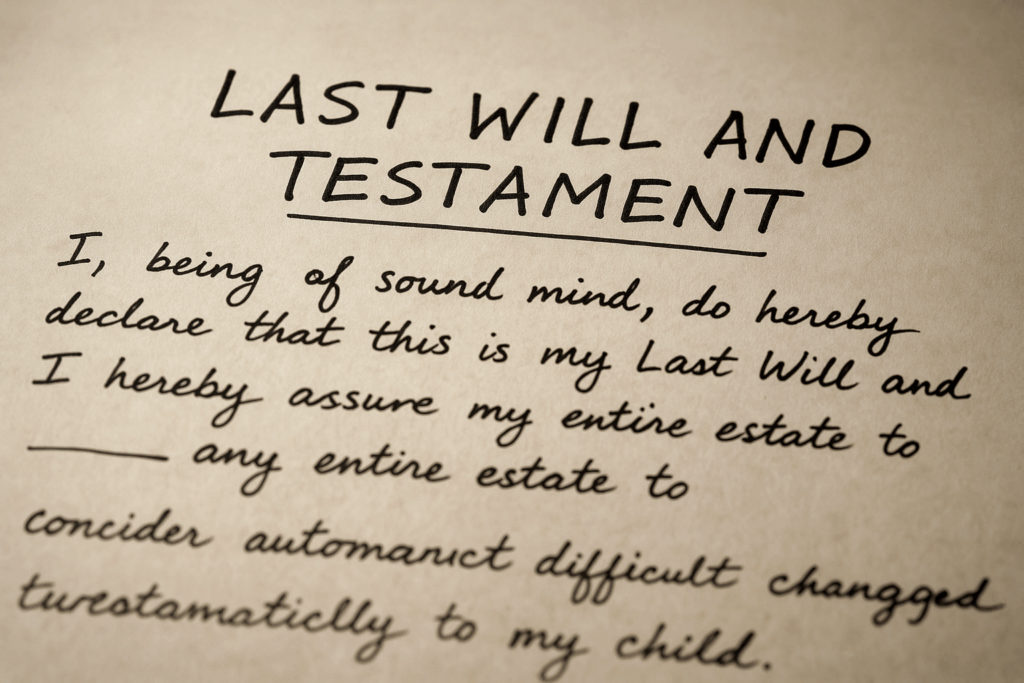 LAST WILL AND
TESTAMENT
I, being of sound mind, do hereby
declare that this is my Last Will and
I hereby assure my entire estate to
_____ any entire estate to
concider difficult changged
to my child.